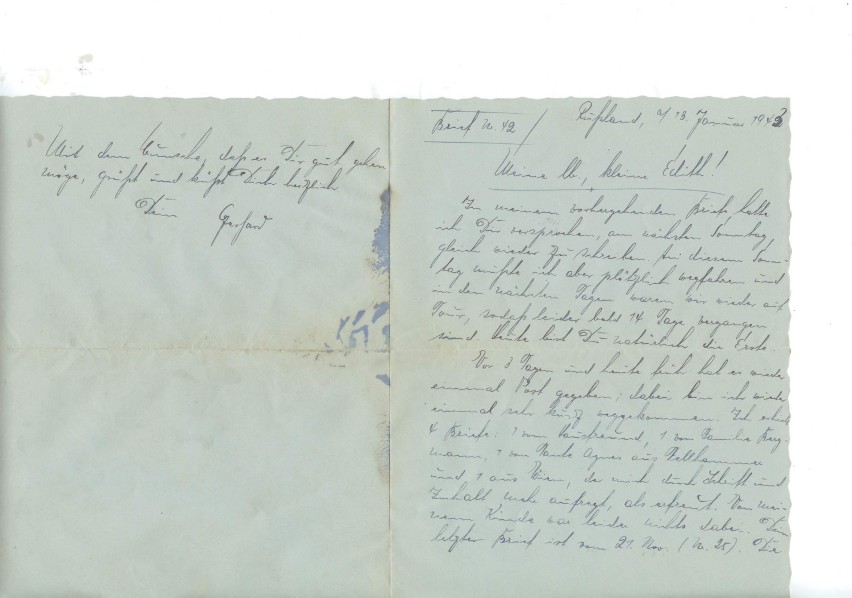 Brief Nr. 42
Rußland, d/ 13. Januar 1943
Meine lb., kleine Edith!
In meinem vorhergehenden Brief hatte
ich Dir versprochen, am nächsten Sonntag
gleich wieder zu schreiben. An diesem Sonn-
tag mußte ich aber plötzlich wegfahren und
in den nächsten Tagen waren wir wieder auf
Tour, sodaß leider bald 14 Tage vergangen
sind. Heute bist Du natürlich die Erste.
Vor 3 Tagen und heute früh hat es wieder
einmal Post gegeben; dabei bin ich wieder
einmal sehr kurz weggekommen. Ich erhielt
4 Briefe: 1 vom Hausfreund, 1 von Familie Berg-
mann, 1 von Tante Agnes aus
und 1 aus Wien, der mich durch Schrift und
Inhalt mehr aufregt, als erfreut. Von mei-
nem Kinde war leider nichts dabei. Dein
letzter Brief ist vom 21. Nov. (Nr. 25). Die
Mit dem Wunsche, daß es Dir gut gehen
möge, grüßt und küßt Dich herzlich
Dein Gerhard